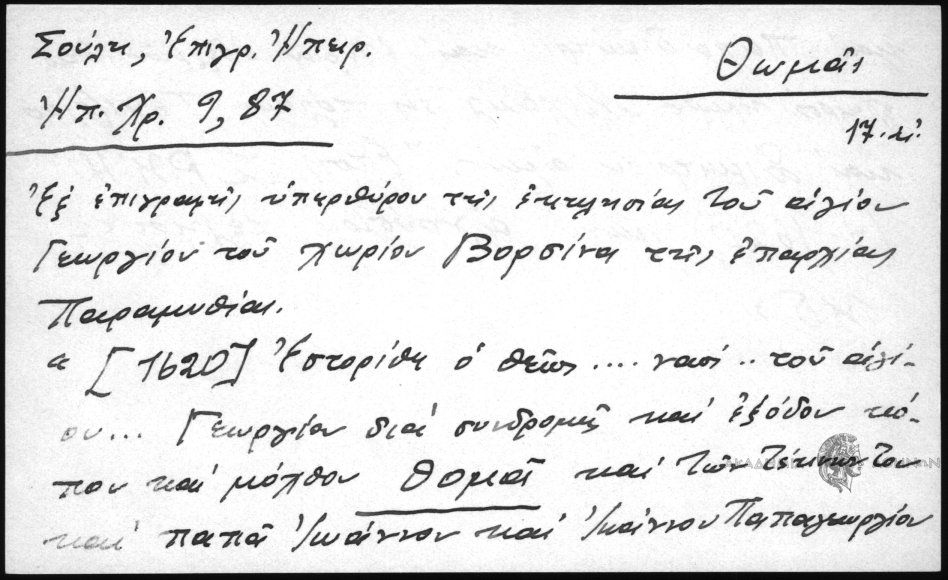 Σούλη, Ἐπιγρ. Ἠπειρ.
Θωμᾶς
Ἠπ. Χρ. 9, 87
17. αἰ.
Ἐξ ἐπιγραφῆς ὑπερθύρου τῆς ἐκκλησίας τοῦ ἁγίου
Γεωργίου τοῦ χωρίου Βορσίνα τῆς ἐπαρχίας
Παραμυθίας.
"[1620] Ἱστορίθη ὁ θεῖος .... ναὸς .. τοῦ ἁγί-
ου... Γεωργίου διὰ συνδρομῆς καὶ ἐξόδου κό-
που καὶ μόχθου Θομᾶ καὶ τῶν τέκνων του
καὶ παπᾶ Ἰωάννου καὶ Ἰωάννου Παπαγεωργίου